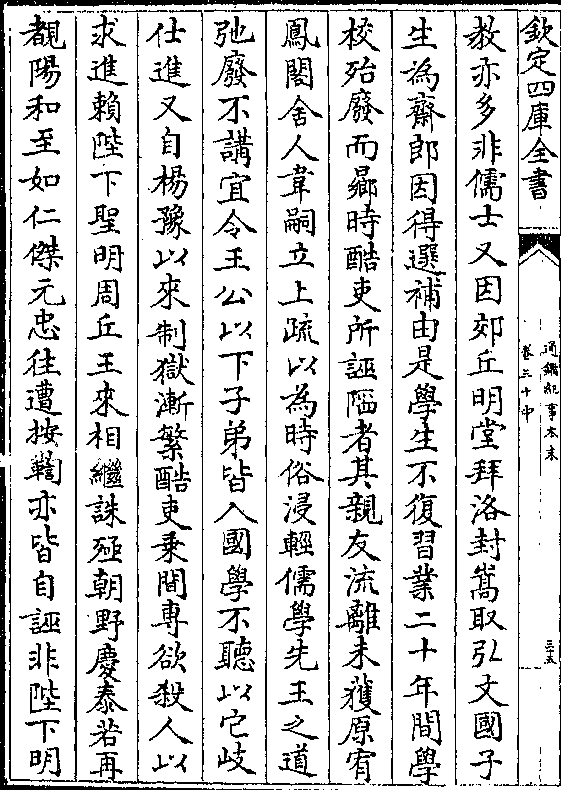 欽定四庫全書
通鑑紀事本末
卷三十中
三五
教亦多非儒士又因郊丘明堂拜洛封嵩取弘文國子
生為齋郎因得選補由是學生不復習業二十年間學
校殆廢而曏時酷吏所誣陷者其親友流離未獲原宥
鳳閣舍人韋嗣立上疏以為時俗浸輕儒學先王之道
弛廢不講宜令王公以下子弟皆入國學不聽以它歧
仕進又自楊豫以來制獄漸繁酷吏乘間專欲殺人以
求進賴陛下聖明周丘王來相繼誅殛朝野慶泰若再
覩陽和至如仁傑元忠往遭按鞫亦皆自誣非陛下明